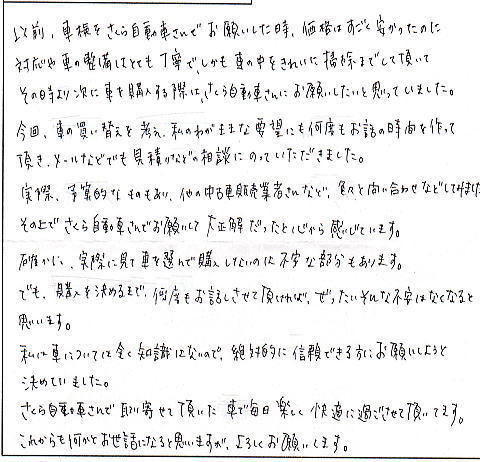 以前、車検をさくら自動車さんでお願いした時、価格はすごく安かったのに
対応や車の整備はとても丁寧で、しかも車の中をきれいに掃除までして頂いて
その時より次に車を購入する際は、さくら自動車さんにお願いしたいと思っていました。
今回、車の買い替えを考え、私のわがままな要望にも何度もお話の時間を作って
頂き、メールなどでも見積りなどの相談にのっていただきました。
実際、予算的なものもあり、他の中古車販売業者さんなど、色々と問い合わせなどしてみました
その上でさくら自動車さんでお願いして大正解だったと心から感じています。
確かに、実際に見て車を選んで購入しないのは不安な部分もあります。
でも、購入を決めるまで、何度もお話しさせて頂ければ、ぜったいそんな不安はなくなると
思います。
私は車については全く知識はないので、絶対的に信頼できる方にお願いしようと
決めていました。
さくら自動車さんで取り寄せて頂いた車で毎日楽しく快適に過ごさせて頂いてます。
これからも何かとお世話になると思いますが、よろしくお願いします。